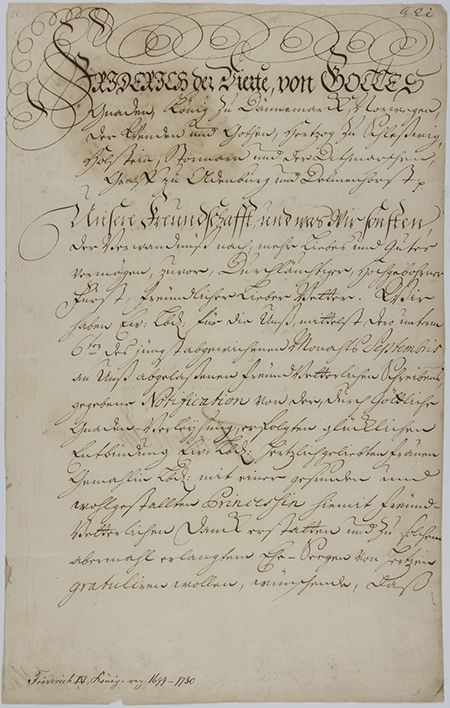 FRIDERICH der Vierte, von GOTTES
Gnaden, König zu Dännemarck, Norwegen
der Wenden und Gothen, Hertzog zu Schleßwig,
Holstein, Stormarn und der Ditmarschen,
Graff zu Oldenburg und Delmenhorst p
Unsere Freundschafft, und was Wir sonsten,
der Verwandnüß nach, mehr Liebes und Gutes
vermögen, zuvor, Durchläuchtiger, Hochgebohrner
Fürst, freündlicher lieber Vetter. Wir
haben Ew: Lbd: für die Unß, mittelst dero unterm
6ten des jüngst abgewichenen Monahts Septembris
an Unß abgelassenen freünd Vetterlichen Schreibens
gegebene Notification von der, durch Göttliche
Gnaden-Verleyhung, erfolgten glücklichen
Entbindung Ew: Lbd: hertzlichgeliebten Frauen
Gemahlin Lbd: mit einer gesunden und
wohlgestallten Princeßin hiemit freünd-
Vetterlichen Danck erstatten und zu solchem
abermahl erlangtem Ehe-Seegen von Hertzen
gratuliren wollen, wünschende, daß
Friedrich IV, König. reg. 1699-1730